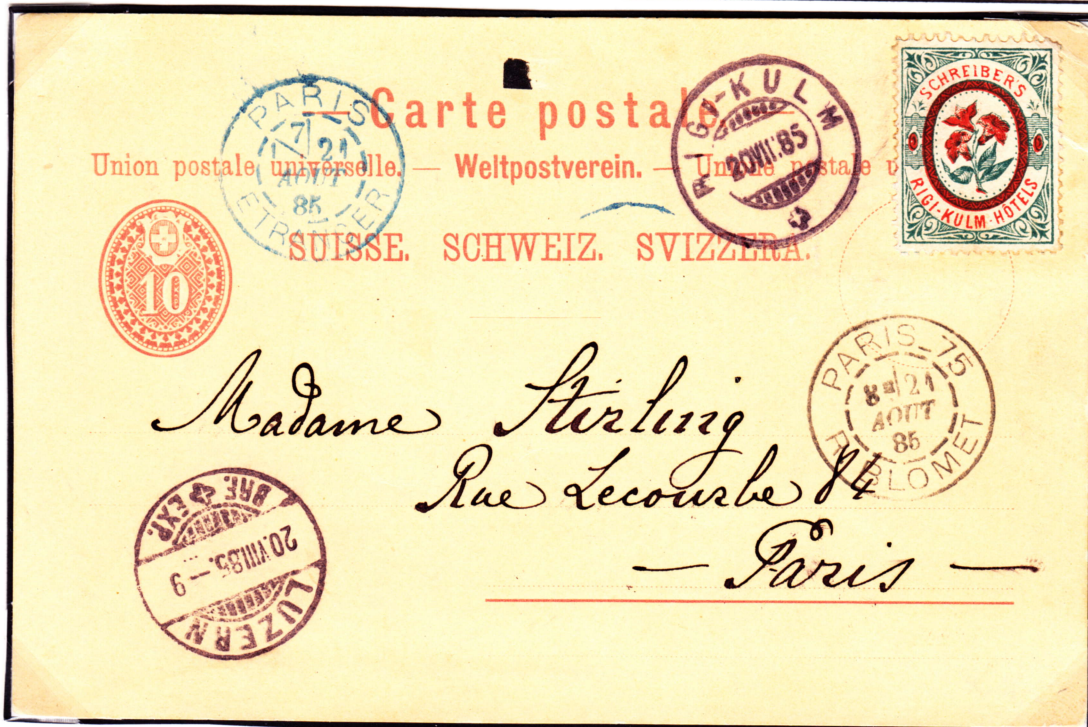 Carte postale.
Union postale universelle. — Weltpostverein. — Un
postale u
SUISSE. SCHWEIZ. SVIZZERA.
10
PARIS
7 21
AOUT
85
ETRANGER
RIGI-KULM
20 VIII 85
SCHREIBER'S
RIGI-KULM-HÔTELS
PARIS_75
8 21
AOUT
85
R. BLOMET
Madame Stirling
Rue Lecourbe 84
— Paris —
BRF. EXP.
20.VIII.85.–9
LUZERN